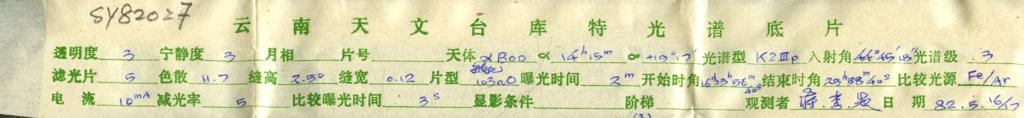 SY82027
云南天文台库特光谱底片
透明度 3 宁静度 3 月相 片号 天体 αBoo α 14h15m 光谱型 K2IIIp 入射角 44°45′18″ 光谱级 3
滤光片 5 色散 11.7 缝高 2.50 缝宽 0.12 片型 103aO 曝光时间 2m 开始时角 结束时角 比较光源 Fe/Ar
电流 10mA 减光率 5 比较曝光时间 3s 显影条件 阶梯 观测者 日期 82.5.16/17